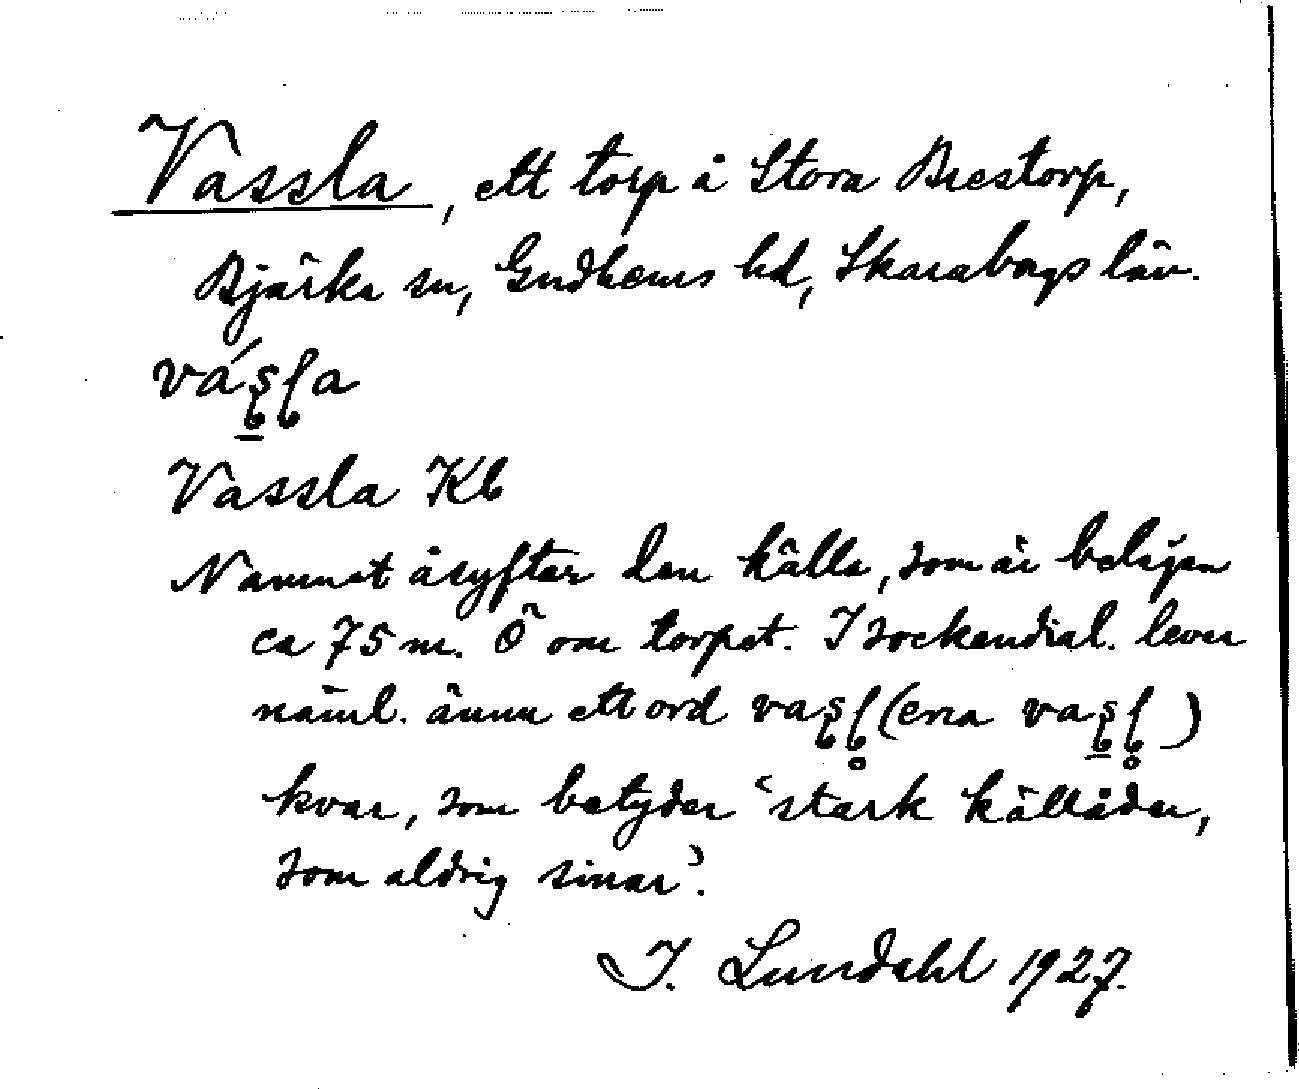 Vassla, ett torp å Stora Brestorp,
Bjärka sn, Gudhems hd, Skaraborgs län.
vás̠̣ḷa
Vassla Kb
Namnet åsyftar den källa, som är belägen
ca 75 m. Ö om torpet. I sockendial. lever
näml. ännu ett ord vaṣḷ̥ (era vaṣ̠ḷ̥)
kvar, som betyder ‘stark källåder,
som aldrig sinar’.
I. Lundahl 1927.